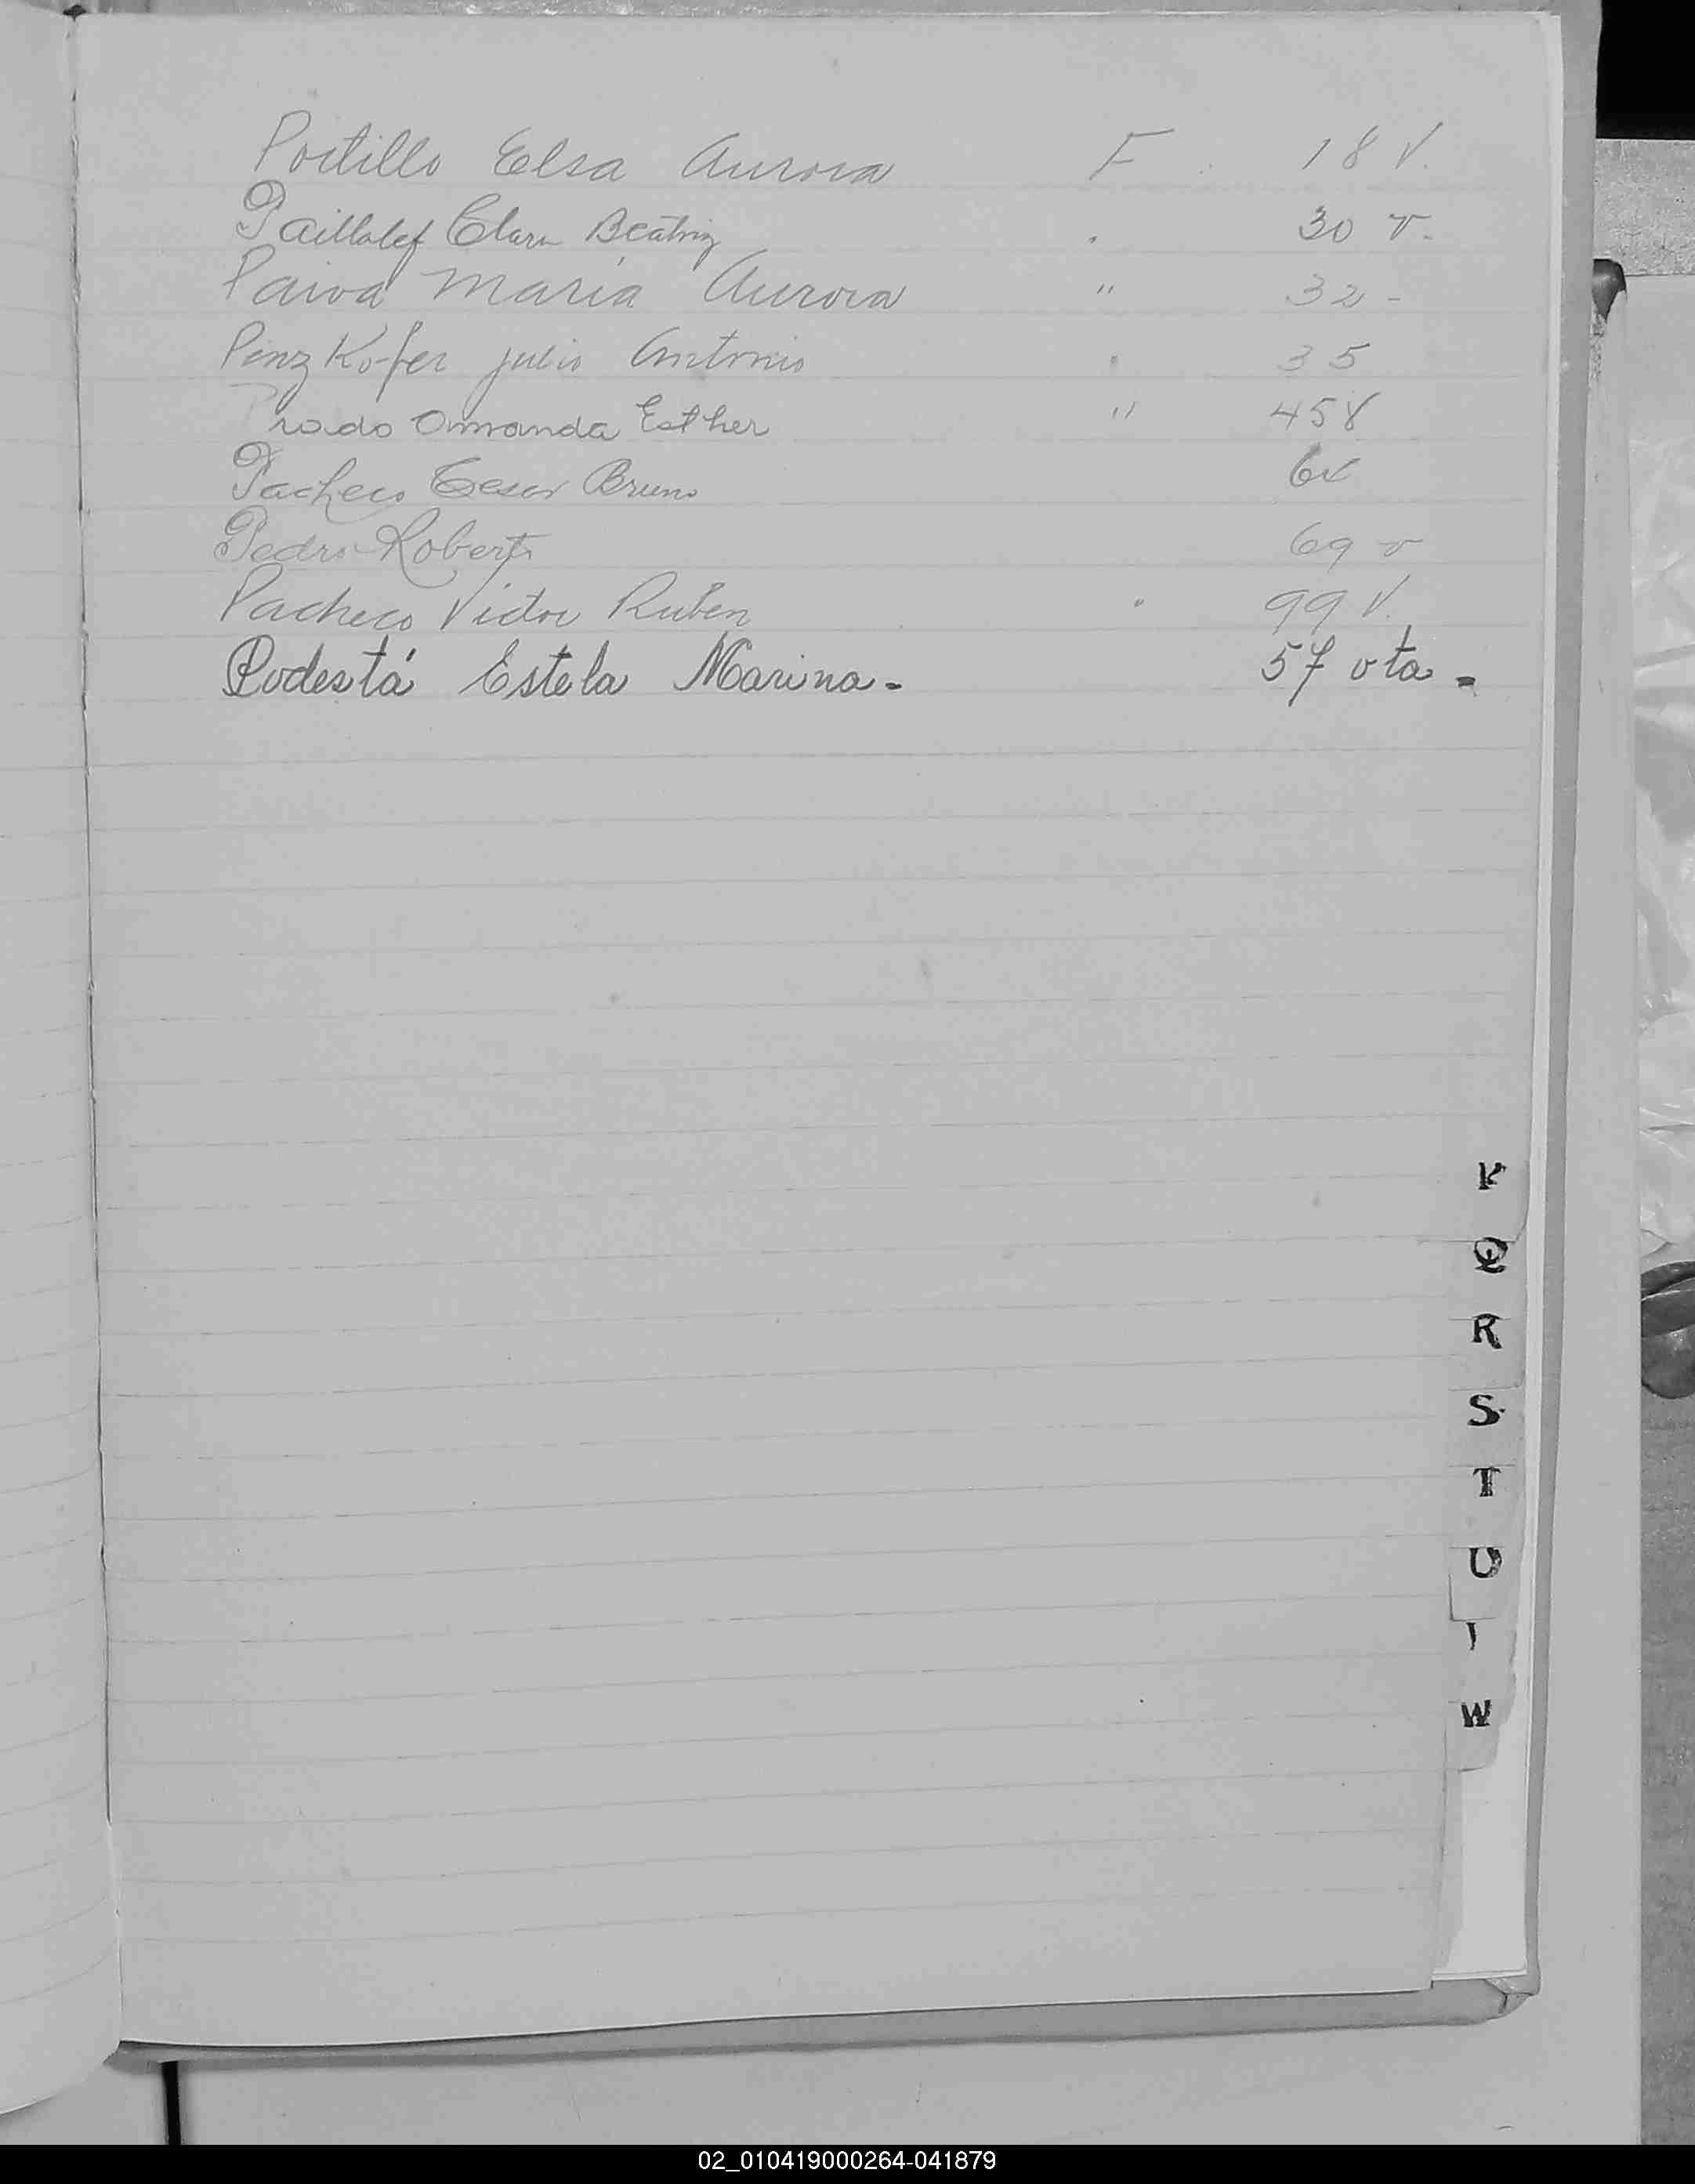 Portillo Elsa Aurora F. 18 V.
Paillalef Clara Beatriz . 30 v.
Paiva Maria Aurora " 32 -
Pinzkofer Julio Antonio " 35
Prado Omanda Esther " 45V
Pacheco Cesar Bruno
Pedro Roberto 69 v
Pacheco Victor Ruben " 99 V.
Podestá Estela Marina - 57 vta -
Q
R
S
T
U
W
02_010419000264-041879